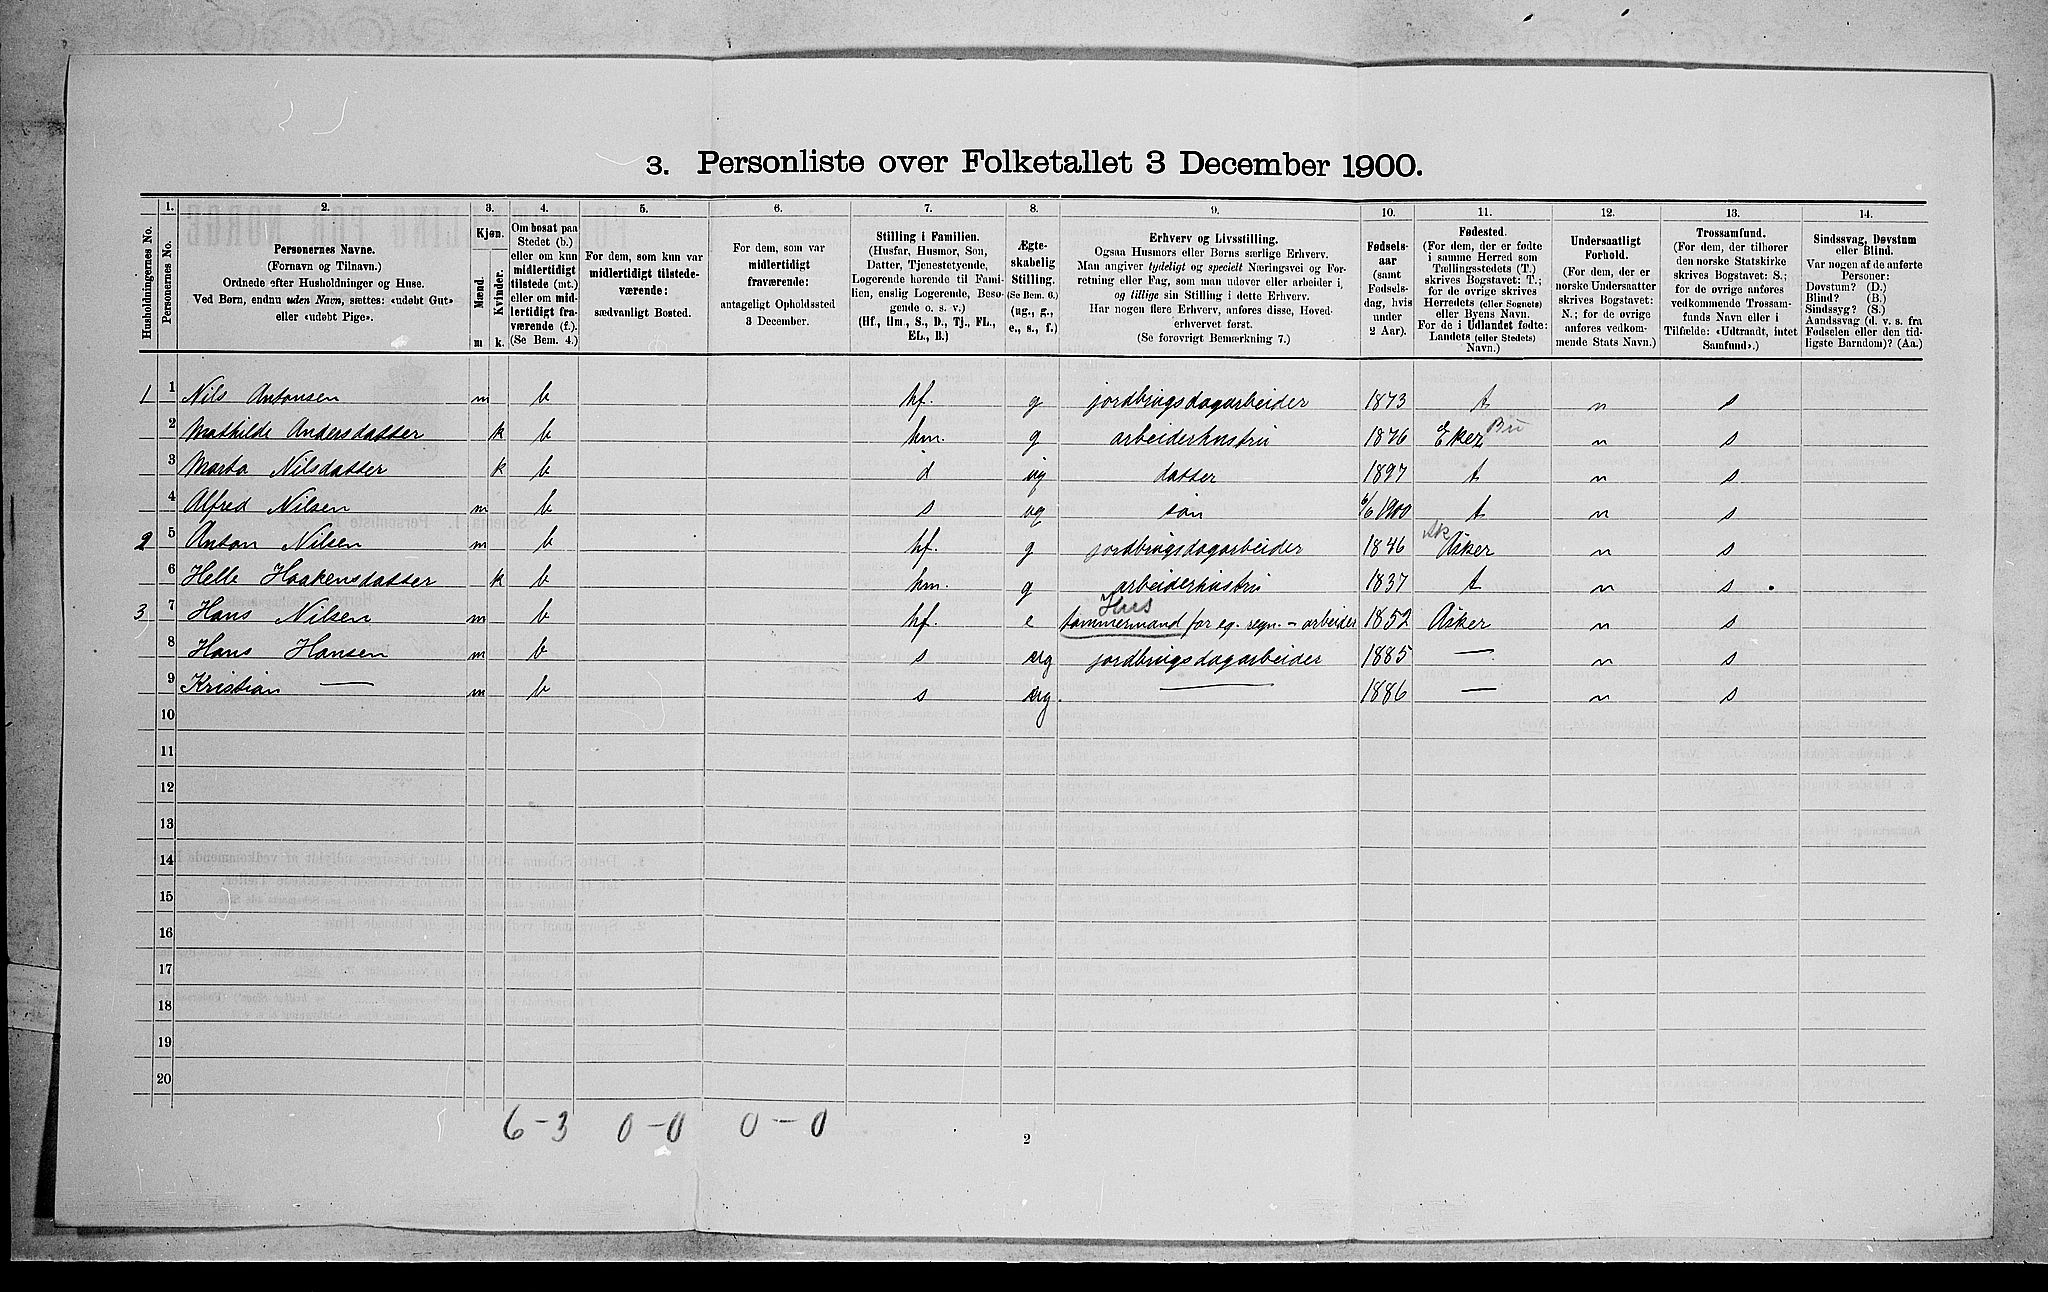 3. Personliste over Folketallet 3 December 1900.
1. 2. 3. 4. 5. 6. 7. 8. 9. 10. 11. 12. 13. 14.
Husholdningernes No.
Personernes No.
Personernes Navne.
(Fornavn og Tilnavn.)
Ordnede efter Husholdninger og Huse.
Ved Børn, endnu uden Navn, sættes: «udøbt Gut»
eller «udøbt Pige».
Kjøn.
Mænd.
Kvinder.
m k.
Om bosat paa
Stedet (b.)
eller om kun
midlertidigt
tilstede (mt.)
eller om mid-
lertidigt fra-
værende (f.).
(Se Bem. 4.)
For dem, som kun var
midlertidigt tilstede-
værende:
sædvanligt Bosted.
For dem, som var
midlertidigt
fraværende:
antageligt Opholdssted
3 December.
Stilling i Familien.
(Husfar, Husmor, Søn,
Datter, Tjenestetyende,
Logerende hørende til Fami-
lien, enslig Logerende, Besø-
gende o. s. v.)
(Hf., Hm., S., D., Tj., FL.,
EL., B.)
Ægte-
skabelig
Stilling.
(Se Bem. 6.)
(ug., g.,
e., s., f.)
Erhverv og Livsstilling.
Ogsaa Husmors eller Børns særlige Erhverv.
Man angiver tydeligt og specielt Næringsvei og For-
retning eller Fag, som man udøver eller arbeider i,
og tillige sin Stilling i dette Erhverv.
Har nogen flere Erhverv, anføres disse, Hoved-
erhvervet først.
(Se forøvrigt Bemærkning 7.)
Fødsels-
aar
(samt
Fødsels-
dag, hvis
under
2 Aar).
Fødested.
(For dem, der er fødte
i samme Herred som
Tællingsstedets (T.)
skrives Bogstavet: T.;
for de øvrige skrives
Herredets (eller Sognets)
eller Byens Navn.
For de i Udlandet fødte:
Landets (eller Stedets)
Navn.)
Undersaatligt
Forhold.
(For dem, der er
norske Undersaatter
skrives Bogstavet:
N.; for de øvrige
anføres vedkom-
mende Stats Navn.)
Trossamfund.
(For dem, der tilhører
den norske Statskirke
skrives Bogstavet: S.;
for de øvrige anføres
vedkommende Trossam-
funds Navn eller i
Tilfælde: «Udtraadt, intet
Samfund».)
Sindssvag, Døvstum
eller Blind.
Var nogen af de anførte
Personer:
Døvstum? (D.)
Blind? (B.)
Sindssyg? (S.)
Aandssvag (d. v. s. fra
Fødselen eller den tid-
ligste Barndom)? (Aa.)
1 1 Nils Antonsen m b hf. g jordbrugsdagarbeider 1873 t n s
2 Mathilde Andersdatter k b hm. g arbeiderhustru 1876 Eker Bu n s
3 Marta Nilsdatter k b d ug datter 1897 t n s
4 Alfred Nilsen m b s ug søn 6/6 1900 t n s
2 5 Anton Nilsen m b hf. g jordbrugsdagarbeider 1846 Ak Asker n s
6 Helle Haakensdatter k b hm. g arbeiderhustru 1837 t n s
Hus
3 7 Hans Nilsen m b hf. e tømmermand for eg. regn. - arbeider 1852 Asker n s
8 Hans Hansen m b s ug jordbrugsdagarbeider 1885 — n s
9 Kristian — m b s ug. — 1886 — n s
10
11
12
13
14
15
16
17
18
19
20
6-3 0-0 0-0
2